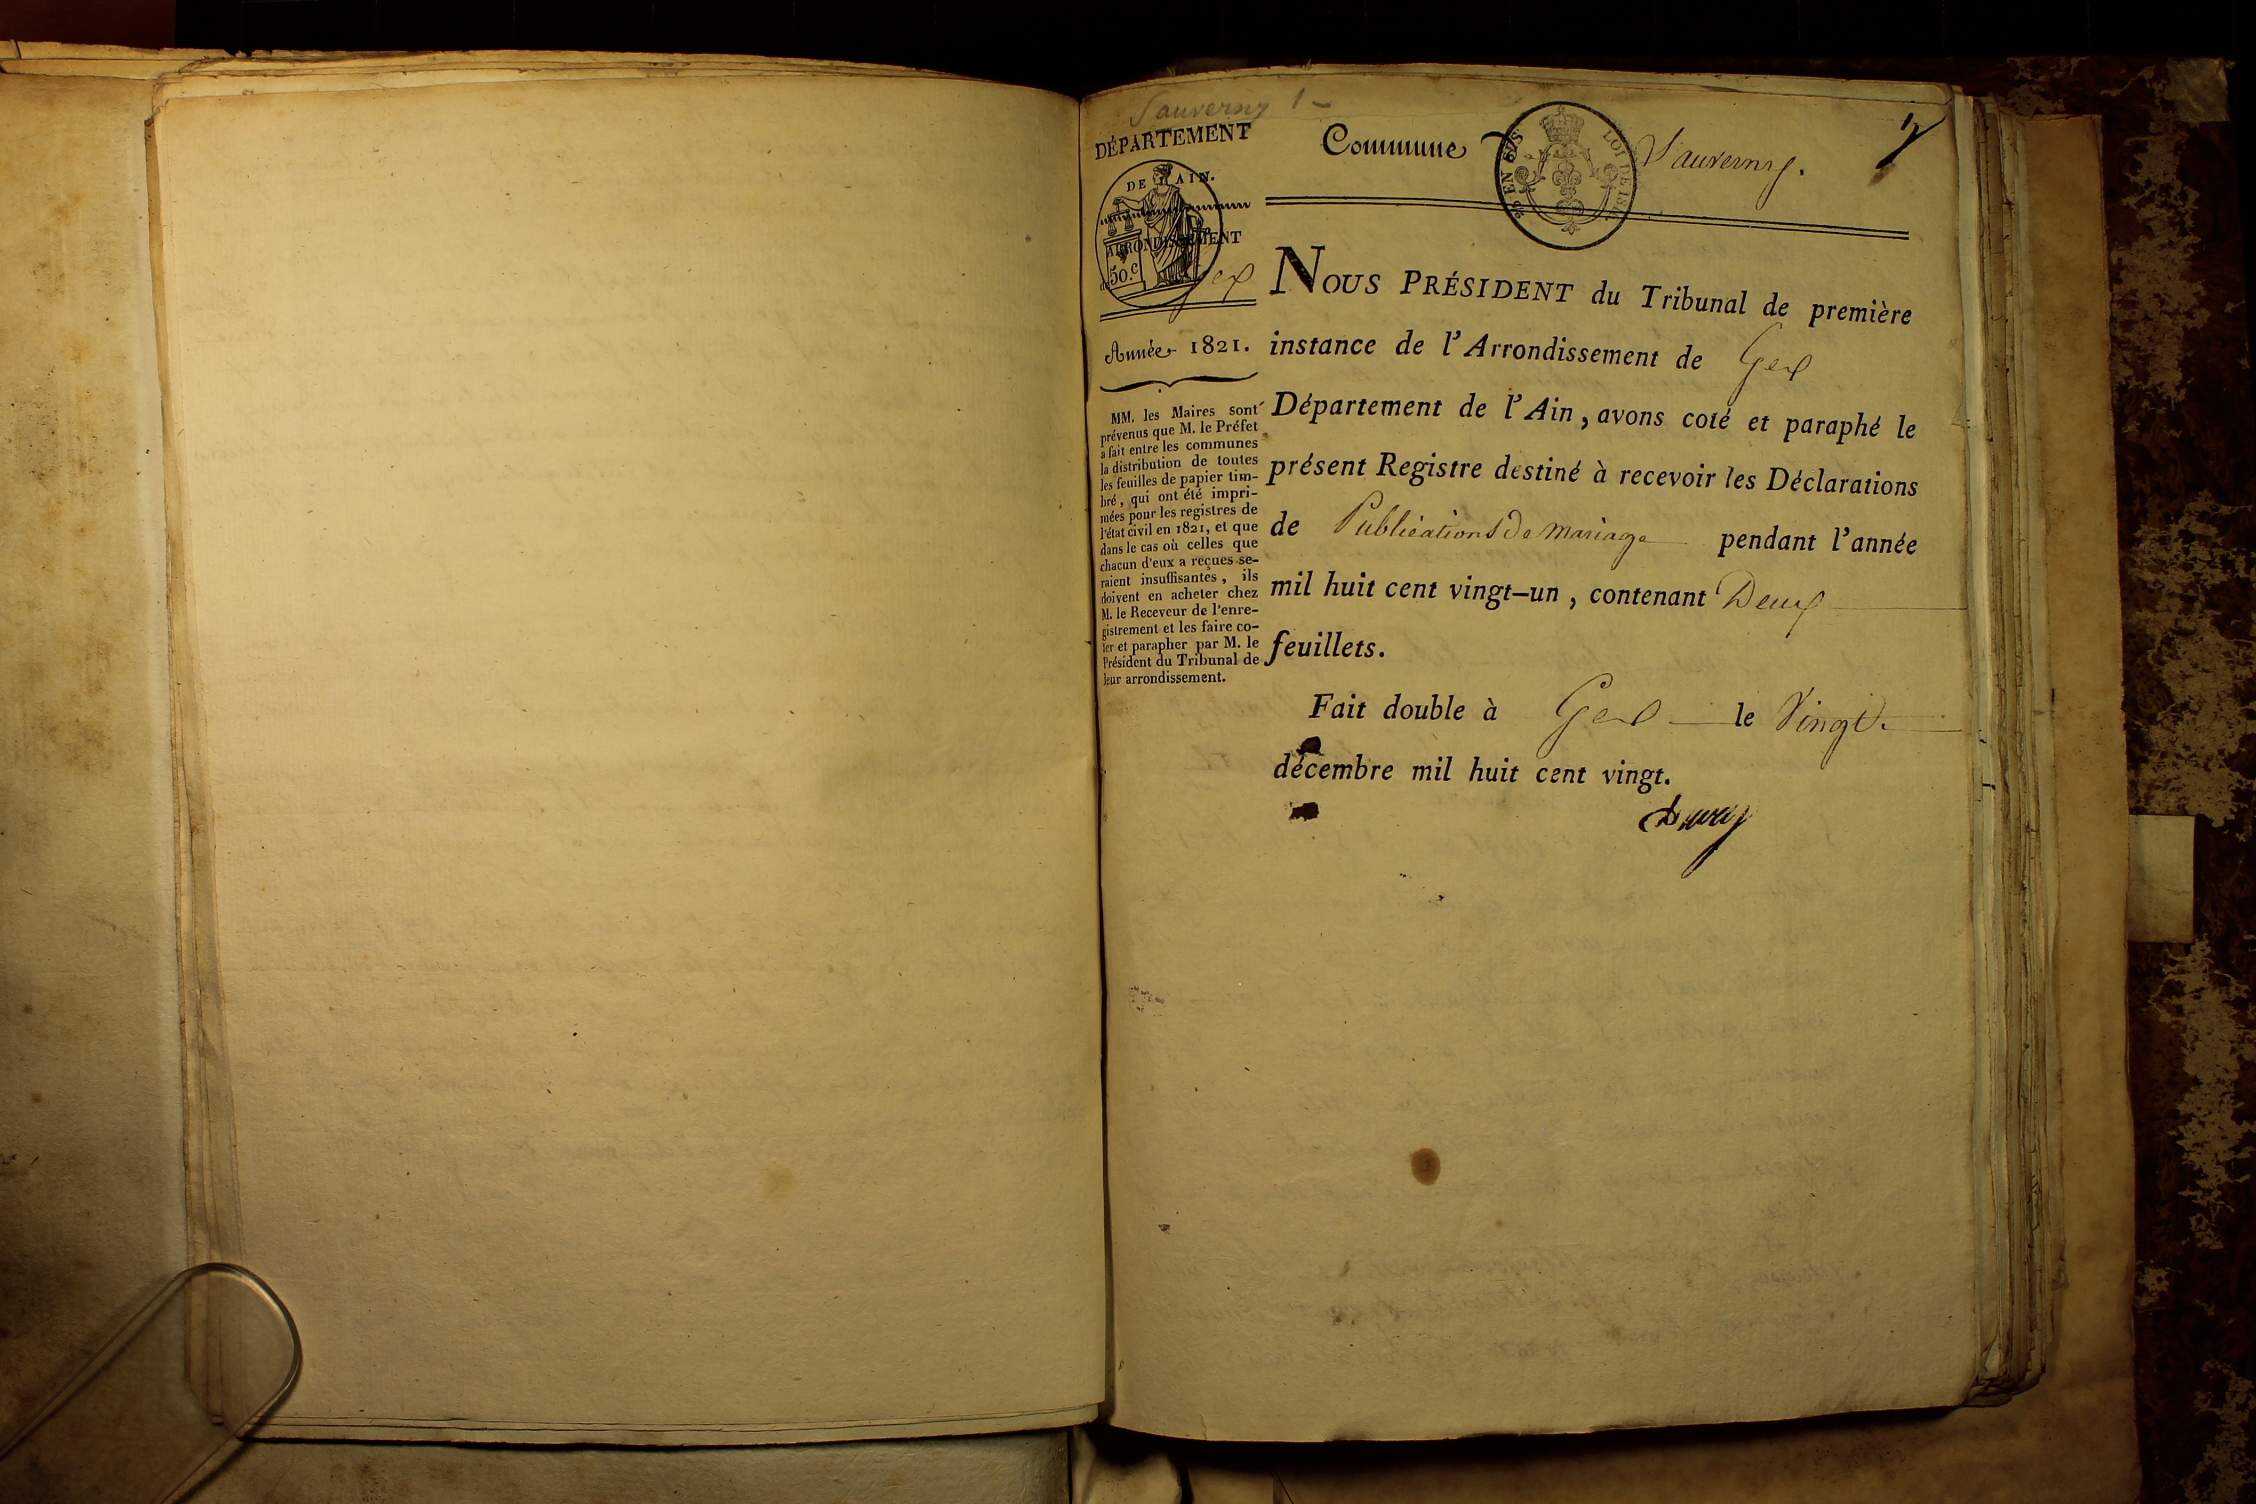 Sauverny 1
DÉPARTEMENT
DE L'AIN.
ARRONDISSEMENT
50.c
de Gex
Année 1821.
MM. les Maires sont
prévenus que M. le Préfet
a fait entre les communes
la distribution de toutes
les feuilles de papier tim-
bré, qui ont été impri-
mées pour les registres de
l'état civil en 1821, et que
dans le cas où celles que
chacun d'eux a reçues se-
raient insuffisantes, ils
doivent en acheter chez
M. le Receveur de l'enre-
gistrement et les faire co-
ter et parapher par M. le
Président du Tribunal de
leur arrondissement.
Commune d Sauverny.
EN SUS
LOI DE
NOUS PRÉSIDENT du Tribunal de première
instance de l'Arrondissement de Gex
Département de l'Ain, avons coté et paraphé le
présent Registre destiné à recevoir les Déclarations
de Publications de mariage pendant l'année
mil huit cent vingt-un, contenant Deux
feuillets.
Fait double à Gex le Vingt
décembre mil huit cent vingt.